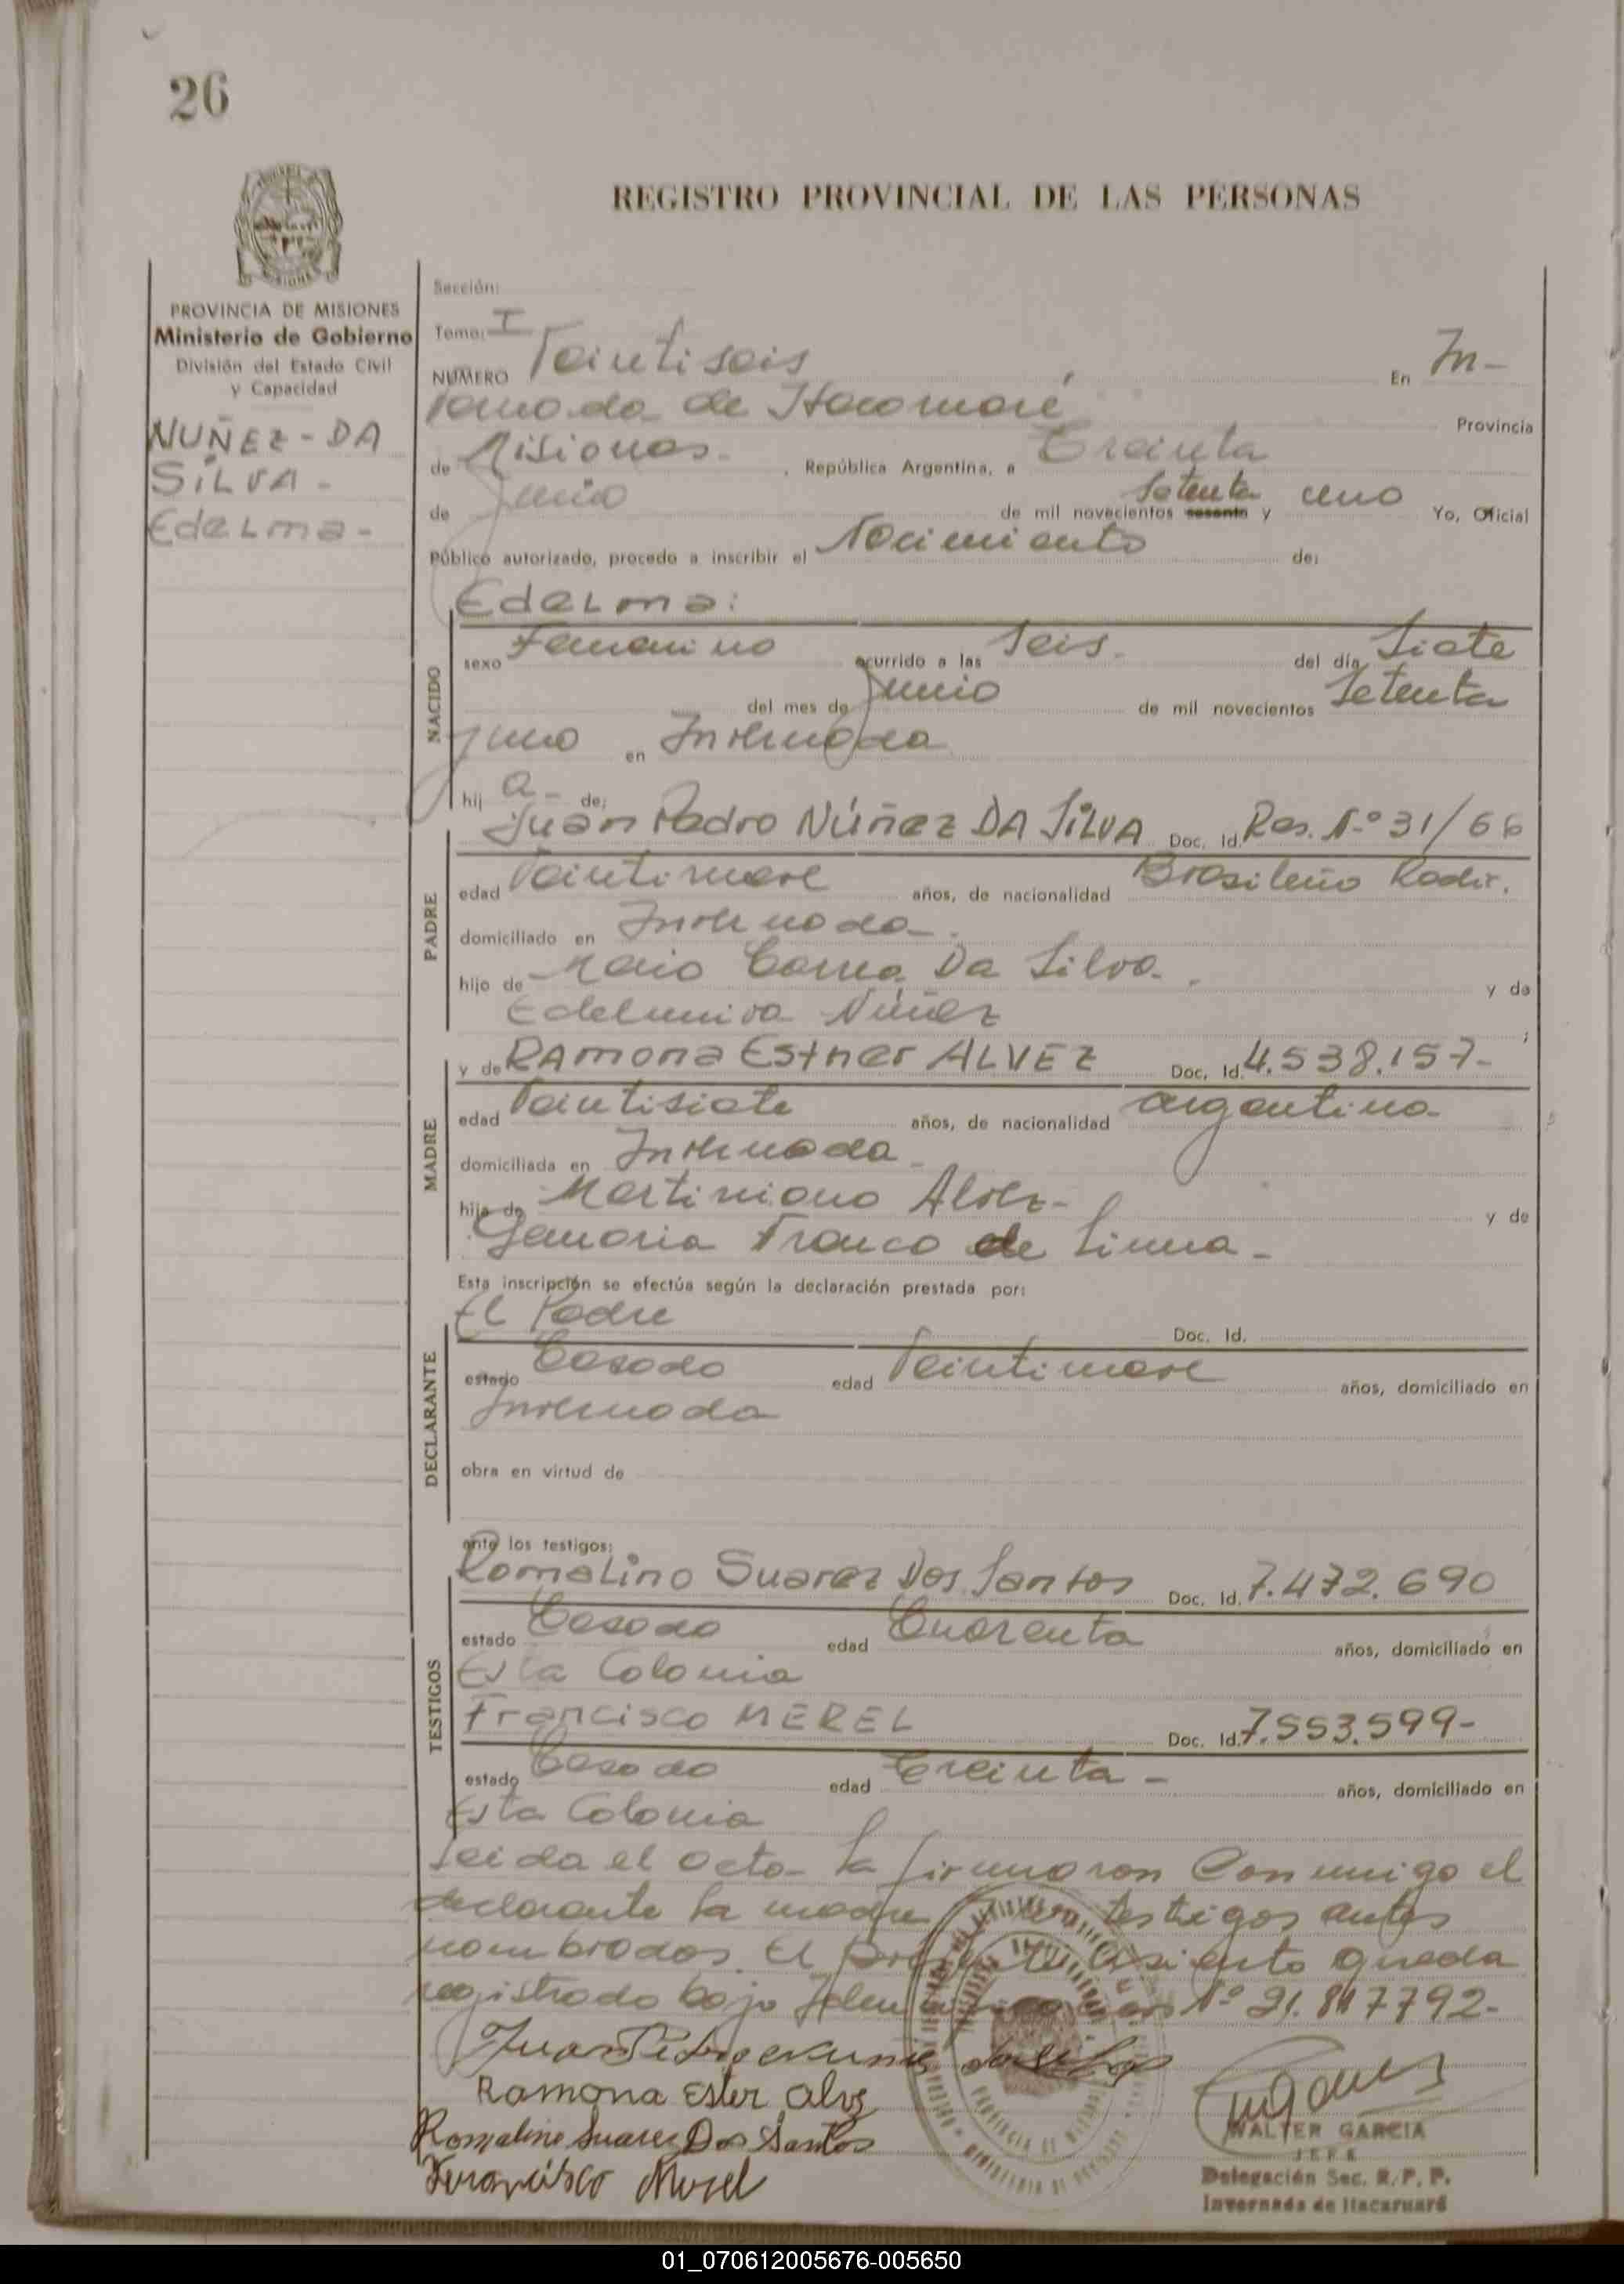 26
REGISTRO PROVINCIAL DE LAS PERSONAS
PROVINCIA DE MISIONES
Ministerio de Gobierno
División del Estado Civil
y Capacidad
NUÑEZ - DA
SILVA -
Edelma -
Sección:
Tomo: I
NÚMERO Veintiseis En In-
vernada de Itacaruaré Provincia
de Misiones. República Argentina, a Treinta
de Junio de mil novecientos sesenta Setenta y uno Yo, Oficial
Público autorizado, procedo a inscribir el Nacimiento de:
Edelma:
NACIDO
sexo Femenino ocurrido a las Seis - del día Siete
del mes de Junio de mil novecientos Setenta
y uno en Invernada
hij a - de:
Juan Pedro Núñez DA SILVA Doc. Id. Res. Nº 31/66
PADRE
edad Veintinueve años, de nacionalidad Brasileño Radic.
domiciliado en Invernada -
hijo de Da Silva - y de
Núñez
y de RAMONA Esther ALVEZ Doc. Id. 4.538.157-
MADRE
edad Veintisiete años, de nacionalidad argentina -
domiciliada en Invernada -
hija de Martiniano Alvez - y de
Franco de Limma -
Esta inscripción se efectúa según la declaración prestada por:
El Padre Doc. Id.
DECLARANTE
estado Casado edad Veintinueve años, domiciliado en
Invernada
obra en virtud de
ante los testigos:
Romalino Suarez Dos Santos Doc. Id. 7.472.690
TESTIGOS
estado Casado edad Cuarenta años, domiciliado en
Esta Colonia
Francisco MEREL Doc. Id. 7.553.599-
estado Casado edad Treinta - años, domiciliado en
Esta Colonia
Leida el acta - la firmaron Conmigo el
declarante la madre testigos antes
nombrados. El presente asiento queda
registrado bajo Nº 21.847792-
Juan Pedro
Ramona Ester Alvez
Romalino Suarez Dos Santos
Francisco Merel
WALTER GARCIA
JEFE
Delegación Sec. R. P. P.
Invernada de Itacaruaré
01_070612005676-005650